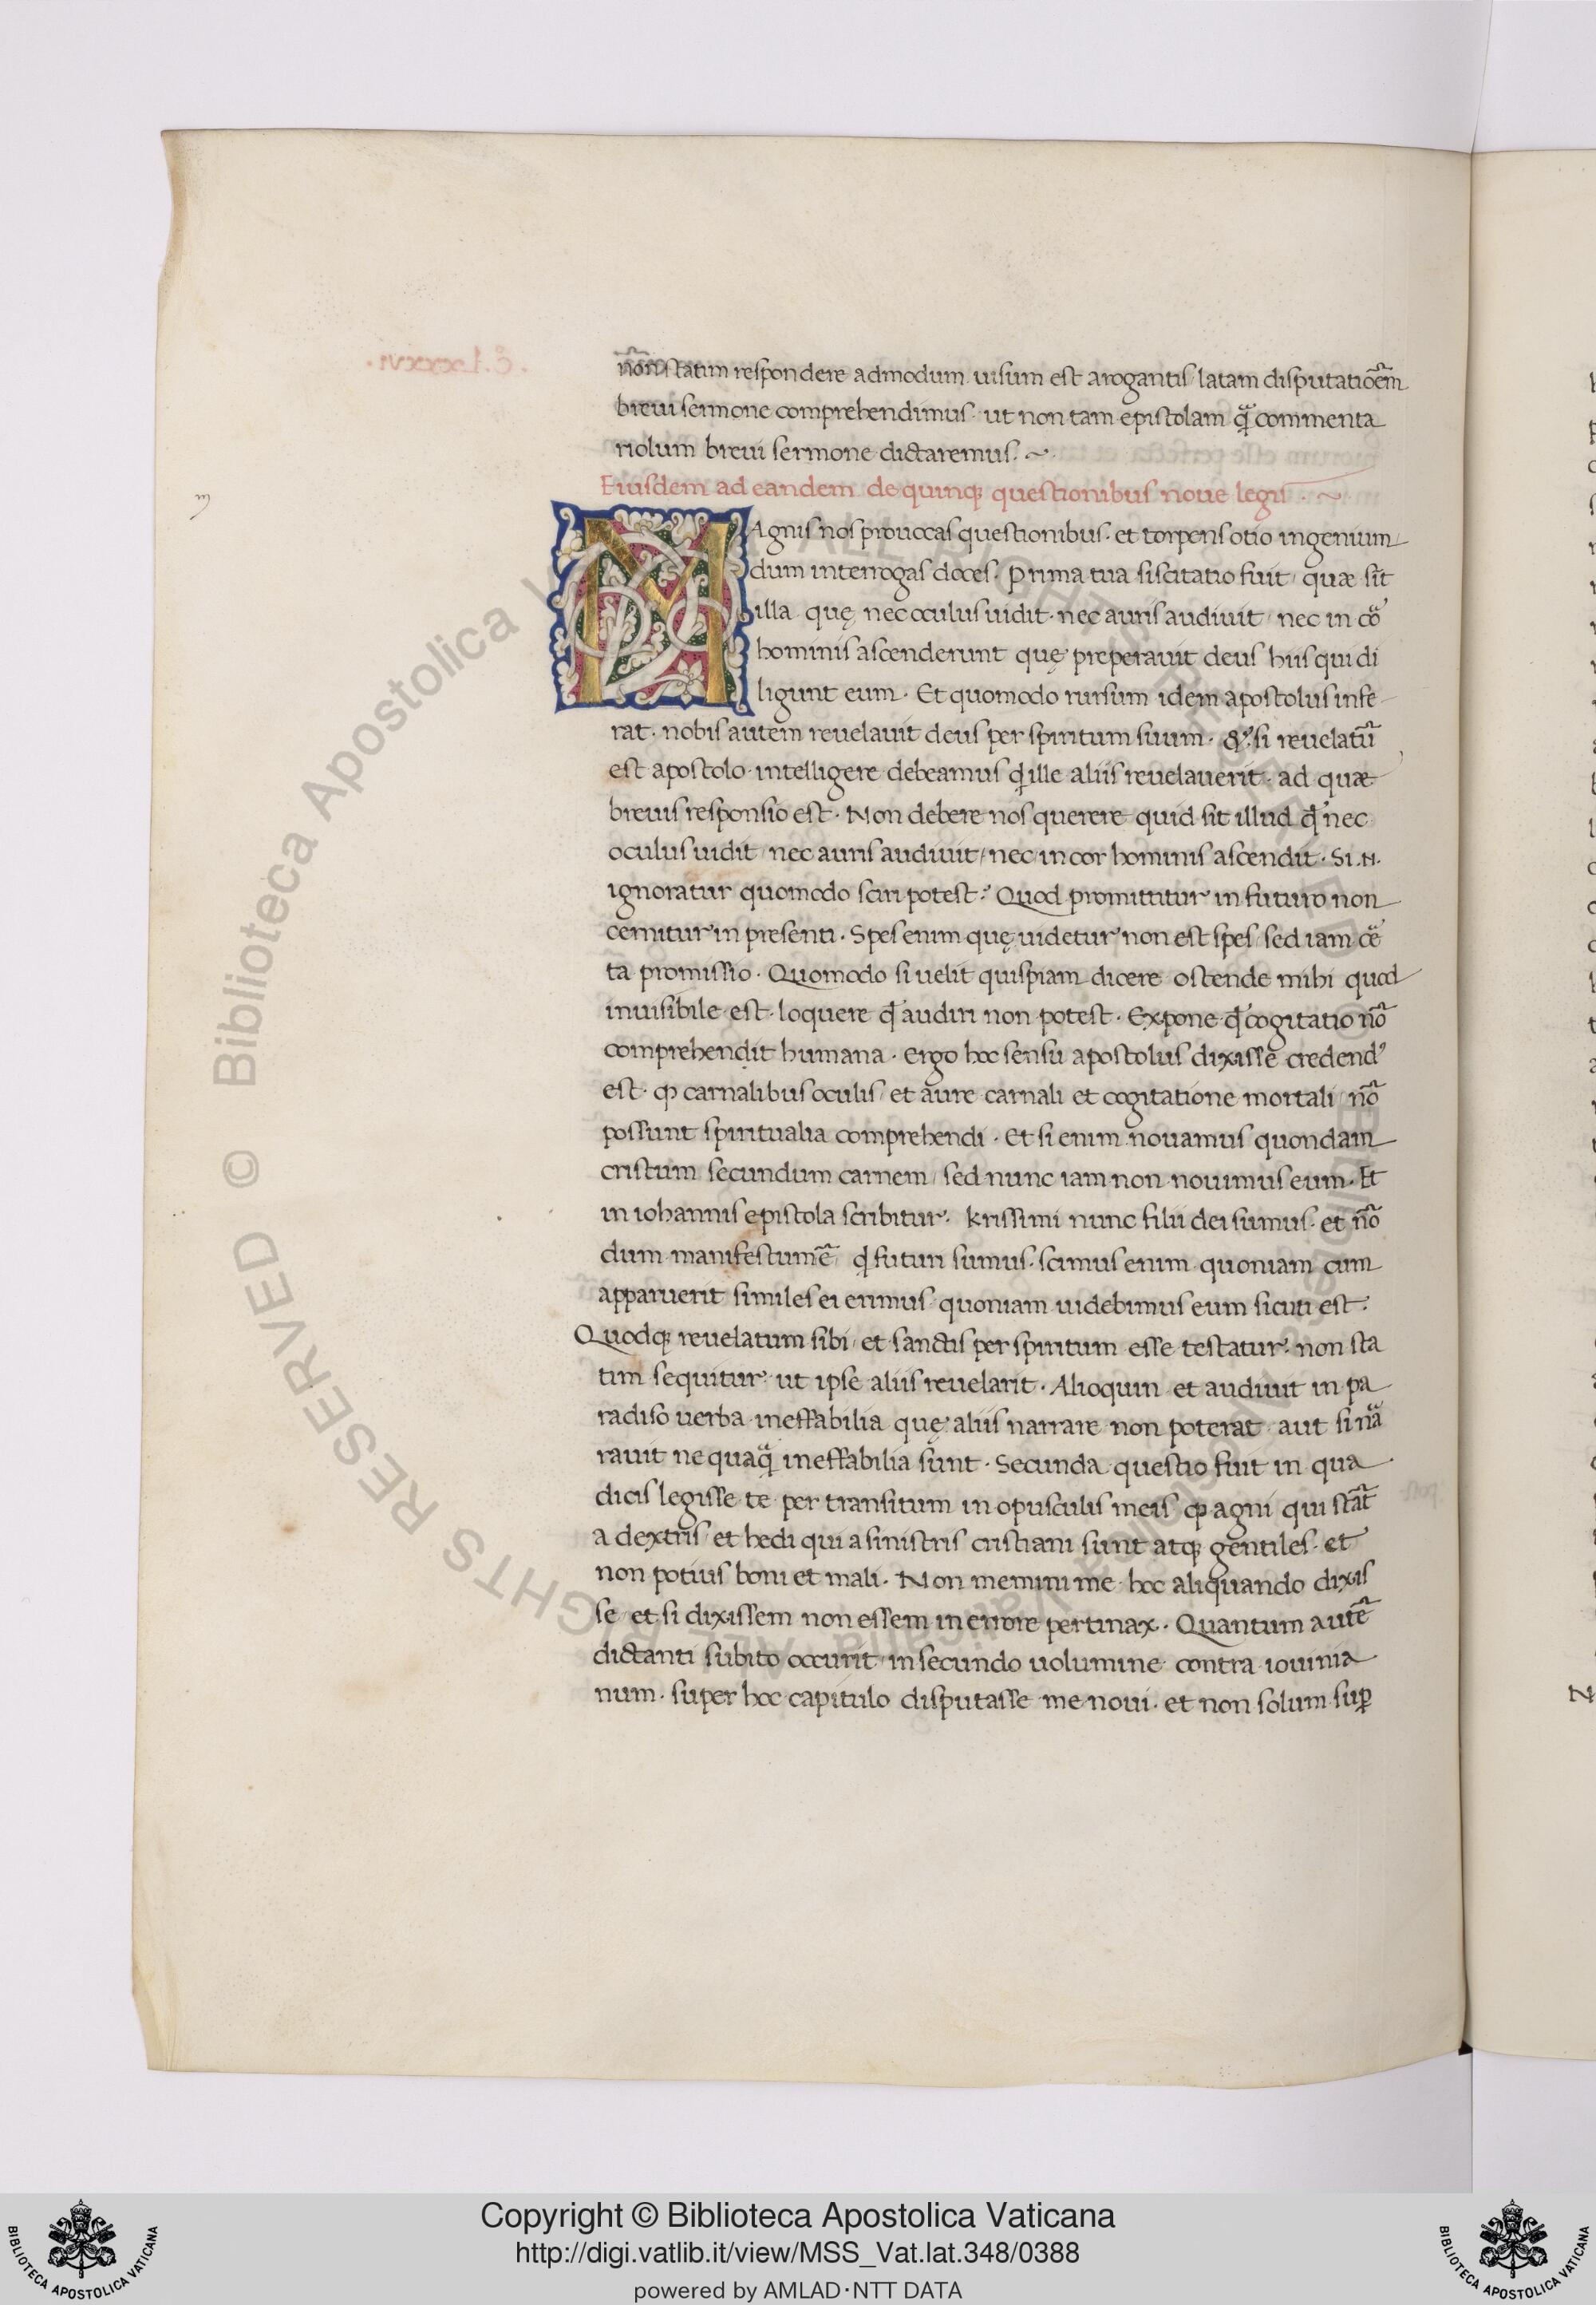 statim respondere admodum uisum est arogantis latam disputatiõem
breui sermone comprehendimus· ut non tam epistolam q̃ commenta
riolum breui sermone dictaremus. ~
Eiusdem ad eandem de quinq; questionibus noue legis . ~
MAgnis nos prouocas questionibus· et torpens otio ingenium
dum interrogas doces. Prima tua siscitatio fuit quæ sit
illa quę nec oculus uidit· nec auris audiuit nec in co᷑
hominis ascenderunt quę preperauit deus hiis qui di
ligunt eum· Et quomodo rursum idem apostolus infe
rat· nobis autem reuelauit deus per spiritum suum· si reuelatũ
est apostolo intelligere debeamus ꝗ ille aliis reuelauerit· ad quæ
breuis responsio est· Non debere nos querere quid sit illud qd̄ nec
oculus uidit nec auris audiuit/ nec in cor hominis ascendit· Si .N.
ignoratur quomodo sciri potest? Quod promittitur in futuro non
cernitur in presenti· Spes enim quę uidetur non est spes/ sed iam ce᷑
ta promissio· Quomodo si uelit quispiam dicere ostende mihi quod
inuisibile est· loquere qd̄ audiri non potest· Expone qd̄ cogitatio nõ
comprehendit humana· ergo hoc sensu apostolus dixisse credendꝰ
est· ꝙ carnalibus oculis/ et aure carnali et cogitatione mortali nõ
possunt spiritualia comprehendi· Et si enim nouamus quondam
cristum secundum carnem/ sed nunc iam non nouimus eum· Et
in iohannis epistola scribitur· krissimi nunc filii dei sumus· et nõ
dum manifestum ẽ ꝗ futuri sumus· scimus enim quoniam cum
apparuerit similes ei erimus quoniam uidebimus eum sicuti est·
Quodq; reuelatum sibi/ et sanctis per spiritum esse testatur· non sta
tim sequitur ut ipse aliis reuelarit· Alioquin et audiuit in pa
radiso uerba ineffabilia quę aliis narrare non poterat aut si na᷑
rauit ne quaq̃ ineffabilia sunt· Secunda questio fuit in qua
dicis legisse te per transitum in opusculis meis ꝙ agni qui stãt
a dextris/ et hedi qui a sinistris cristiani sunt atq; gentiles· et
non potius boni et mali· Non memini me hoc aliquando dixis
se/ et si dixissem non essem in errore pertinax· Quantum autẽ
dictanti subito occurit/ in secundo uolumine contra iouinia
num· super hoc capitulo disputasse me noui· et non solum suꝑ
Copyright © Biblioteca Apostolica Vaticana
http://digi.vatlib.it/view/MSS_Vat.lat.348/0388
powered by AMLAD·NTT DATA